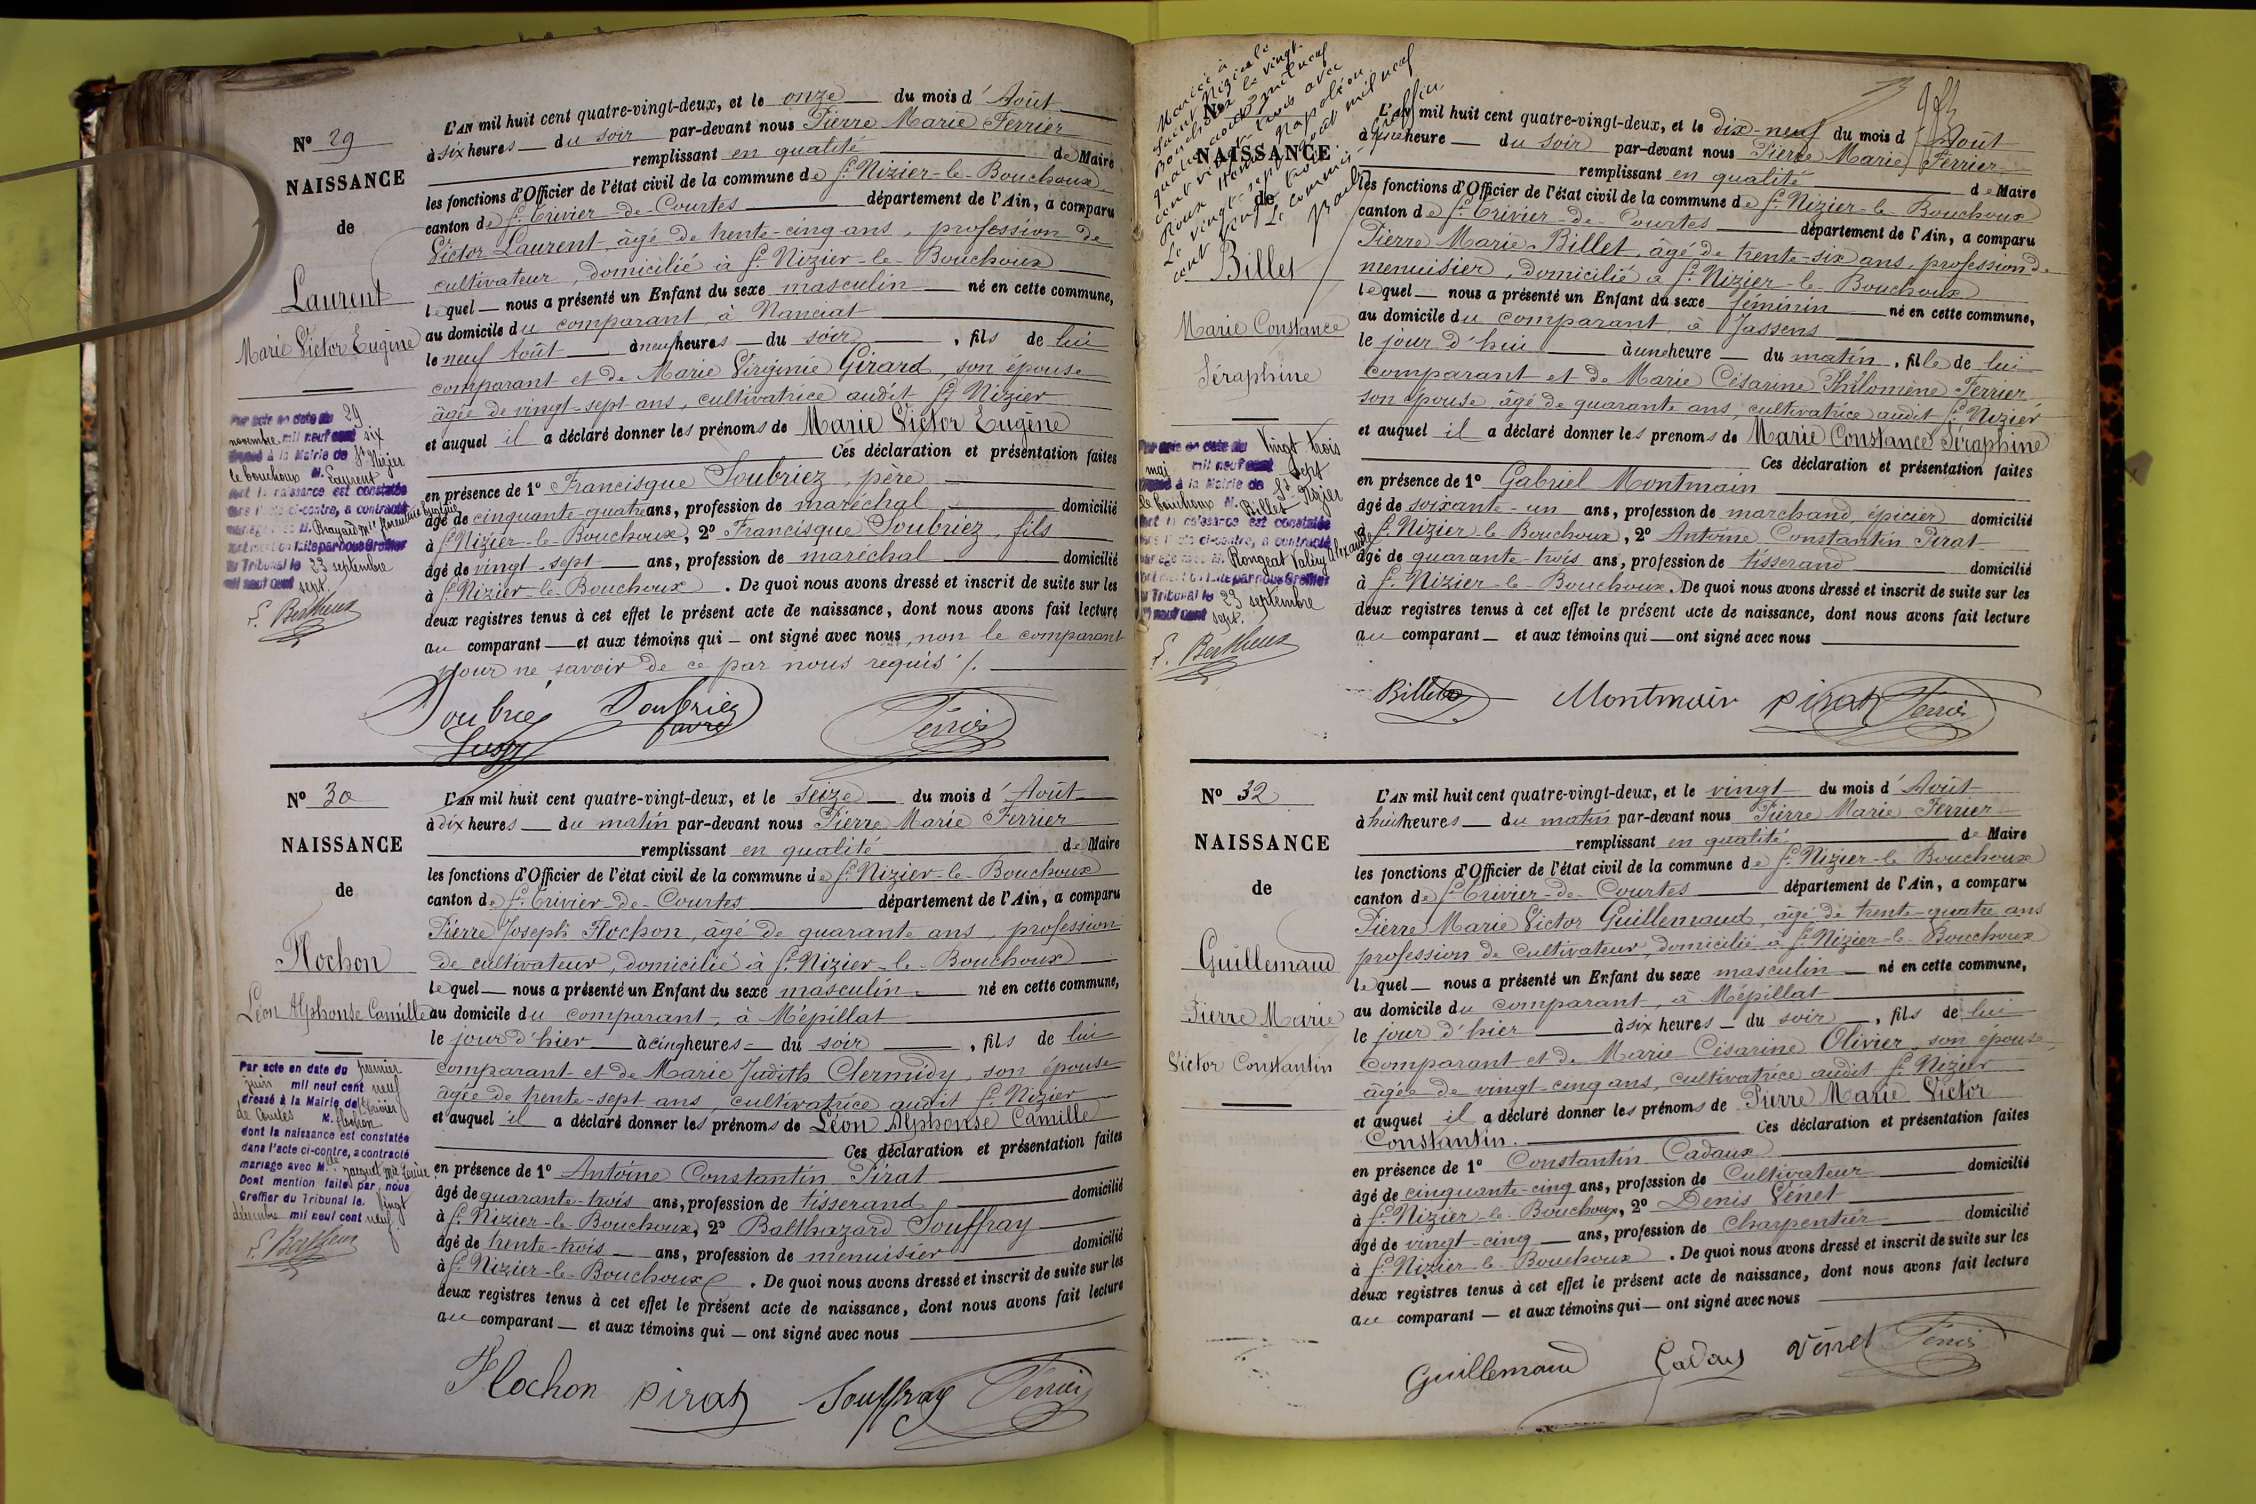 Nº 29
NAISSANCE
de
Laurent
Marie Victor Eugène
Par acte en date du 29
novembre mil neuf cent six
dressé à la Mairie de St Nizier
le bouchoux M. Laurent
dont la naissance est constatée
dans l'acte ci-contre, a contracté
mariage avec M. Brayard Mie florentine Eugénie
Dont mention faite par nous Greffier
du Tribunal le 23 septembre
mil neuf cent sept
L'AN mil huit cent quatre-vingt-deux, et le onze du mois d'Août
à six heures du soir par-devant nous Pierre Marie Ferrier
remplissant en qualité de Maire
les fonctions d'Officier de l'état civil de la commune de St Nizier-le-Bouchoux
canton de St Trivier-de-Courtes département de l'Ain, a comparu
Victor Laurent, âgé de trente-cinq ans, profession de
cultivateur, domicilié à St Nizier-le-Bouchoux
lequel nous a présenté un Enfant du sexe masculin né en cette commune,
au domicile du comparant, à Nanciat
le neuf Août à neuf heures du soir, fils de lui
comparant et de Marie Virginie Girard, son épouse
âgée de vingt-sept ans, cultivatrice audit St Nizier
et auquel il a déclaré donner les prénoms de Marie Victor Eugène
Ces déclaration et présentation faites
en présence de 1º Francisque Soubriez, père
âgé de cinquante-quatre ans, profession de maréchal domicilié
à St Nizier-le-Bouchoux, 2º Francisque Soubriez, fils
âgé de vingt-sept ans, profession de maréchal domicilié
à St Nizier-le-Bouchoux. De quoi nous avons dressé et inscrit de suite sur les
deux registres tenus à cet effet le présent acte de naissance, dont nous avons fait lecture
au comparant et aux témoins qui ont signé avec nous, non le comparant
pour ne savoir de ce par nous requis ./.
Soubriez Soubriez Ferrier
Nº 30
NAISSANCE
de
Flochon
Léon Alphonse Camille
Par acte en date du premier
juin mil neuf cent neuf
dressé à la Mairie de St Trivier
de Courtes M. flochon
dont la naissance est constatée
dans l'acte ci-contre, a contracté
mariage avec Mlle Jacquet Mie Louise
Dont mention faite par nous
Greffier du Tribunal le Vingt
décembre mil neuf cent neuf
L'AN mil huit cent quatre-vingt-deux, et le seize du mois d'Août
à dix heures du matin par-devant nous Pierre Marie Ferrier
remplissant en qualité de Maire
les fonctions d'Officier de l'état civil de la commune de St Nizier-le-Bouchoux
canton de St Trivier-de-Courtes département de l'Ain, a comparu
Pierre Joseph Flochon, âgé de quarante ans, profession
de cultivateur, domicilié à St Nizier-le-Bouchoux
lequel nous a présenté un Enfant du sexe masculin né en cette commune,
au domicile du comparant, à Mépillat
le jour d'hier à cinq heures du soir, fils de lui
comparant et de Marie Judith Clermidy, son épouse
âgée de trente-sept ans, cultivatrice audit St Nizier
et auquel il a déclaré donner les prénoms de Léon Alphonse Camille
Ces déclaration et présentation faites
en présence de 1º Antoine Constantin Pirat
âgé de quarante-trois ans, profession de tisserand domicilié
à St Nizier-le-Bouchoux, 2º Balthazard Souffray
âgé de trente-trois ans, profession de menuisier domicilié
à St Nizier-le-Bouchoux. De quoi nous avons dressé et inscrit de suite sur les
deux registres tenus à cet effet le présent acte de naissance, dont nous avons fait lecture
au comparant et aux témoins qui ont signé avec nous
Flochon Pirat Souffray Ferrier
Mariée à
Saint Nizier le
Bouchoux le vingt-
quatre août mil neuf
cent vingt-trois avec
Roux Napoléon
Le vingt-sept août mil neuf
cent vingt trois
Le commis-greffier
NAISSANCE
de
Billet
Marie Constance
Séraphine
Par acte en date du Vingt trois
mai mil neuf cent sept
dressé à la Mairie de St Nizier
le bouchoux M. Billet
dont la naissance est constatée
dans l'acte ci-contre, a contracté
mariage avec M. Rongeat Valéry Alexandre
Dont mention faite par nous Greffier
du Tribunal le 23 septembre
mil neuf cent sept.
L'AN mil huit cent quatre-vingt-deux, et le dix-neuf du mois d'Août
à une heure du soir par-devant nous Pierre Marie Ferrier
remplissant en qualité de Maire
les fonctions d'Officier de l'état civil de la commune de St Nizier-le-Bouchoux
canton de St Trivier-de-Courtes département de l'Ain, a comparu
Pierre Marie Billet, âgé de trente-six ans, profession de
menuisier, domicilié à St Nizier-le-Bouchoux
lequel nous a présenté un Enfant du sexe féminin né en cette commune,
au domicile du comparant, à Jassens
le jour d'hui à une heure du matin, fille de lui
comparant et de Marie Césarine Philomène Ferrier
son épouse, âgé de quarante ans, cultivatrice audit St Nizier
et auquel il a déclaré donner les prenoms de Marie Constance Séraphine
Ces déclaration et présentation faites
en présence de 1º Gabriel Montmain
âgé de soixante-un ans, profession de marchand épicier domicilié
à St Nizier-le-Bouchoux, 2º Antoine Constantin Pirat
âgé de quarante-trois ans, profession de tisserand domicilié
à St Nizier-le-Bouchoux. De quoi nous avons dressé et inscrit de suite sur les
deux registres tenus à cet effet le présent acte de naissance, dont nous avons fait lecture
au comparant et aux témoins qui ont signé avec nous
Billet Montmain Pirat Ferrier
Nº 32
NAISSANCE
de
Guillemaud
Pierre Marie
Victor Constantin
L'AN mil huit cent quatre-vingt-deux, et le vingt du mois d'Août
à huit heures du matin par-devant nous Pierre Marie Ferrier
remplissant en qualité de Maire
les fonctions d'Officier de l'état civil de la commune de St Nizier-le-Bouchoux
canton de St Trivier-de-Courtes département de l'Ain, a comparu
Pierre Marie Victor Guillemaud, âgé de trente-quatre ans
profession de cultivateur, domicilié à St Nizier-le-Bouchoux
lequel nous a présenté un Enfant du sexe masculin né en cette commune,
au domicile du comparant, à Mépillat
le jour d'hier à six heures du soir, fils de lui
comparant et de Marie Césarine Olivier, son épouse,
âgée de vingt-cinq ans, cultivatrice audit St Nizier
et auquel il a déclaré donner les prénoms de Pierre Marie Victor
Constantin. Ces déclaration et présentation faites
en présence de 1º Constantin Cadaux
âgé de cinquante-cinq ans, profession de Cultivateur domicilié
à St Nizier-le-Bouchoux, 2º Denis Vénet
âgé de vingt-cinq ans, profession de charpentier domicilié
à St Nizier-le-Bouchoux. De quoi nous avons dressé et inscrit de suite sur les
deux registres tenus à cet effet le présent acte de naissance, dont nous avons fait lecture
au comparant et aux témoins qui ont signé avec nous
Guillemaud Cadaux Vénet Ferrier